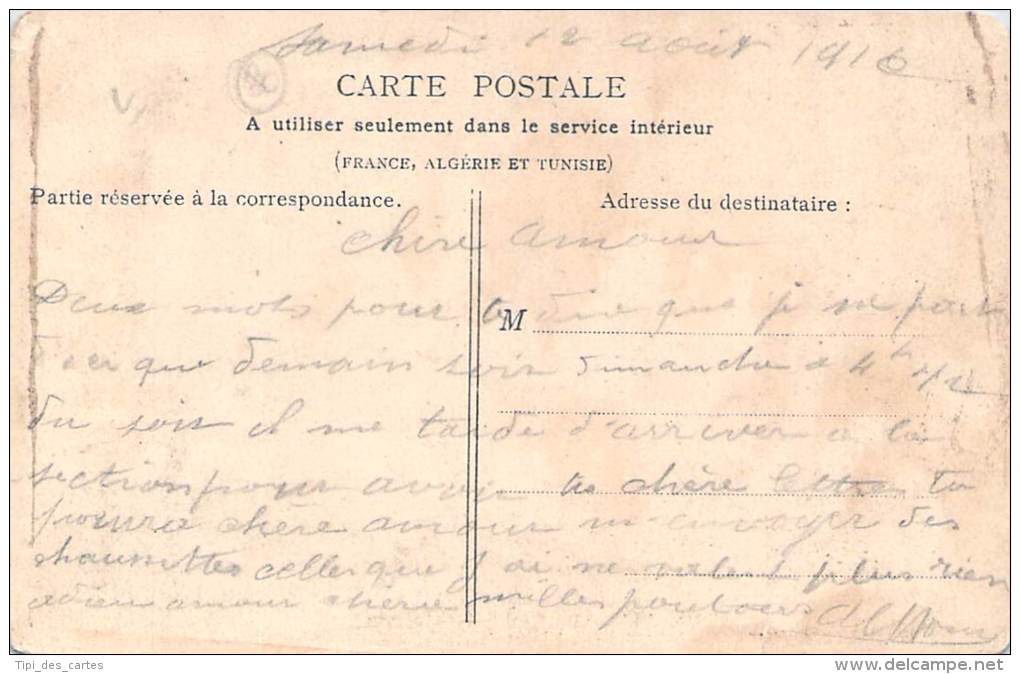 Samedi 12 août 1916
CARTE POSTALE
A utiliser seulement dans le service intérieur
(FRANCE, ALGÉRIE ET TUNISIE)
Partie réservée à la correspondance.
Adresse du destinataire :
chère amour
Deux mots pour te dire que je ne par
d'ici que demain soir dimanche a 4h 1/2
M
du soir il me tarde d'arriver a la
section pour avoir ta chère lettre tu
poura chère amour m'envoyer des
chaussettes celles que j'ai ne valent plus rien
adieu amour chérie milles poutous
Tipi_des_cartes
www.delcampe.net